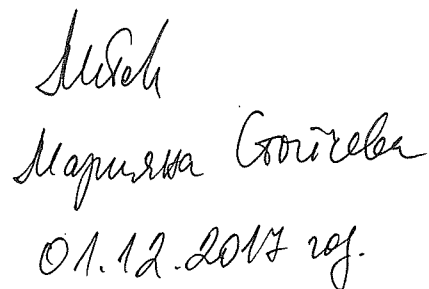 Марияна Стойчева
01.12.2017 год.